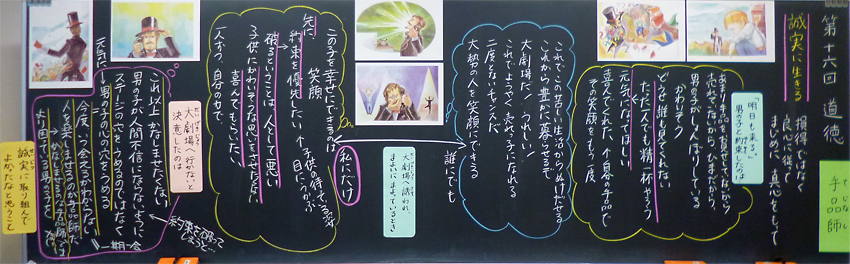 第十六回 道徳
手品師
てじなし
誠実に生きる
損得ではなく
良心に従って
まじめに、真心をもって
「明日も来る。」
男の子と約束したのは
あまり手品を見せてないから
売れてないから、ひまだから、
男の子がしょんぼりしている
かわいそう
どうせ誰も見てくれない
たった一人でも精一杯やろう
元気になってほしい
喜んでくれた、自身の手品で
その笑顔をもう一度
これでこの苦しい生活からぬけだせる
これから豊かに暮らせるぞ
大劇場だ!うれしい!
これでようやく売れっ子になれる
二度とないチャンスだ
大勢の人を笑顔にできる
誰にでも
大劇場へ誘われ、
まよいにまよっているとき
私にだけ
この子を幸せにできるのは
笑顔
先に
約束を優先したい
破るということは人として悪い
子供にかわいそうな思いをさせたくない
喜んでもらいたい
一人ずつ、自分の力で、
大劇場へ行かないと
決意したのは
これ以上かなしませたくない
男の子が人間不信にならないように
ステージの穴をうめるのではなく
男の子の心の穴をうめる
元気に
今度、いつ会えるかわからない
一期一会
約束を破って
しまうと…
誠実に取り組んで
よかったなと思うこと